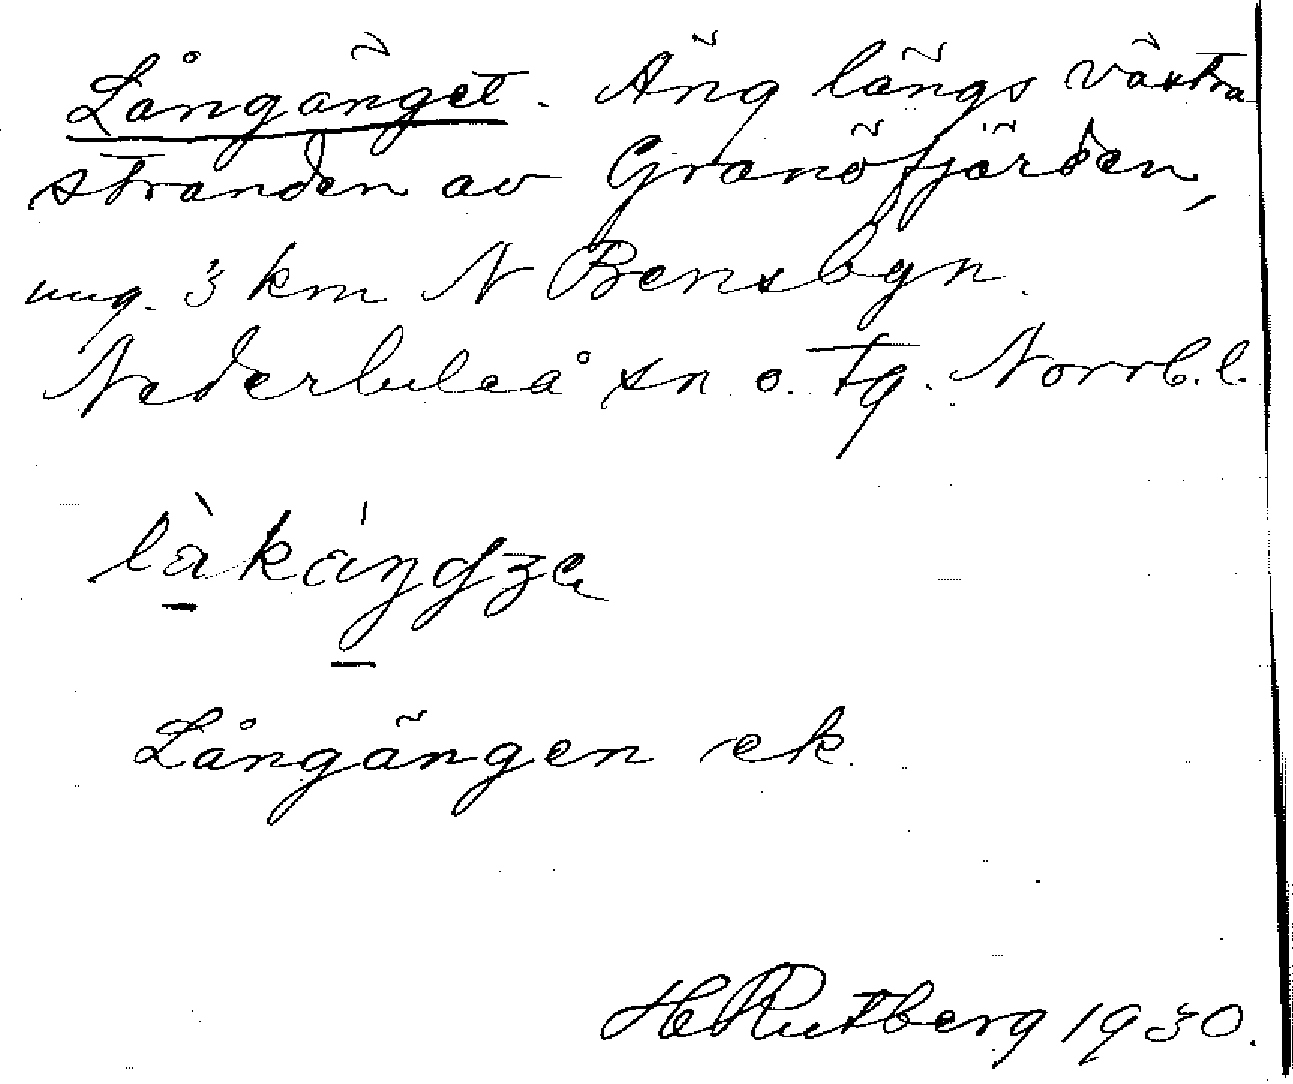 Långänget. Äng längs västra
stranden av Granöfjärden,
ung. 3 km N Bensbyn.
Nederluleå sn o. tg. Norrb. l.
Långängen ek.
H Rutberg 1930.